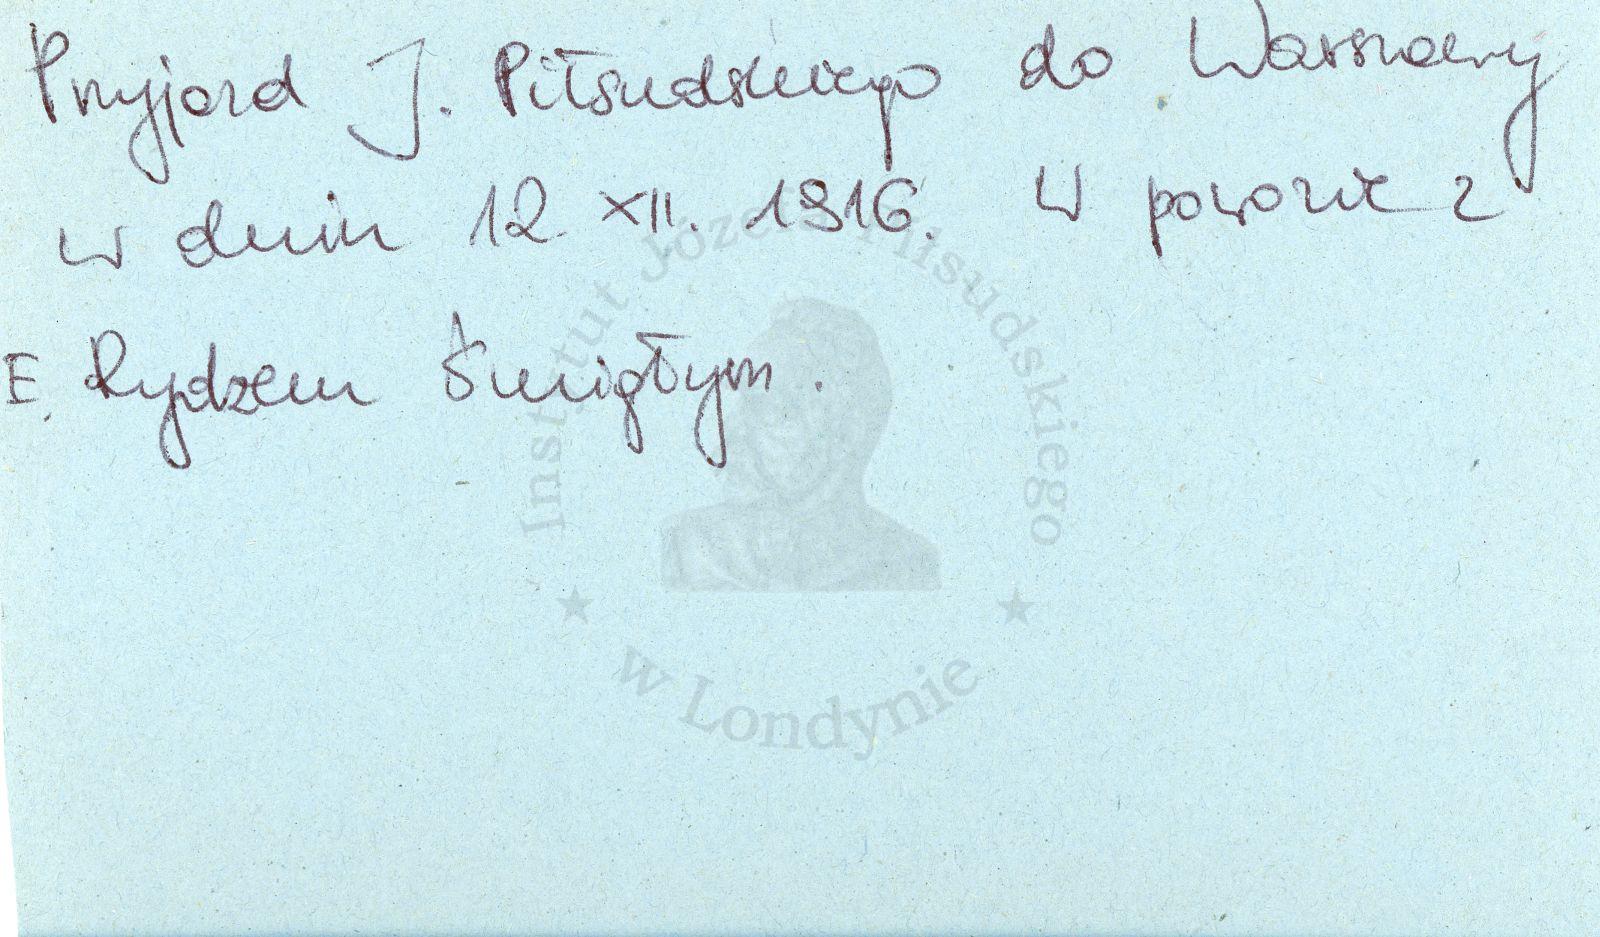 Przyjazd J. Piłsudskiego do Warszawy
w dniu 12 XII. 1916. W powozie z
E. Rydzem Śmigłym.
Instytut Józefa Piłsudskiego
w Londynie